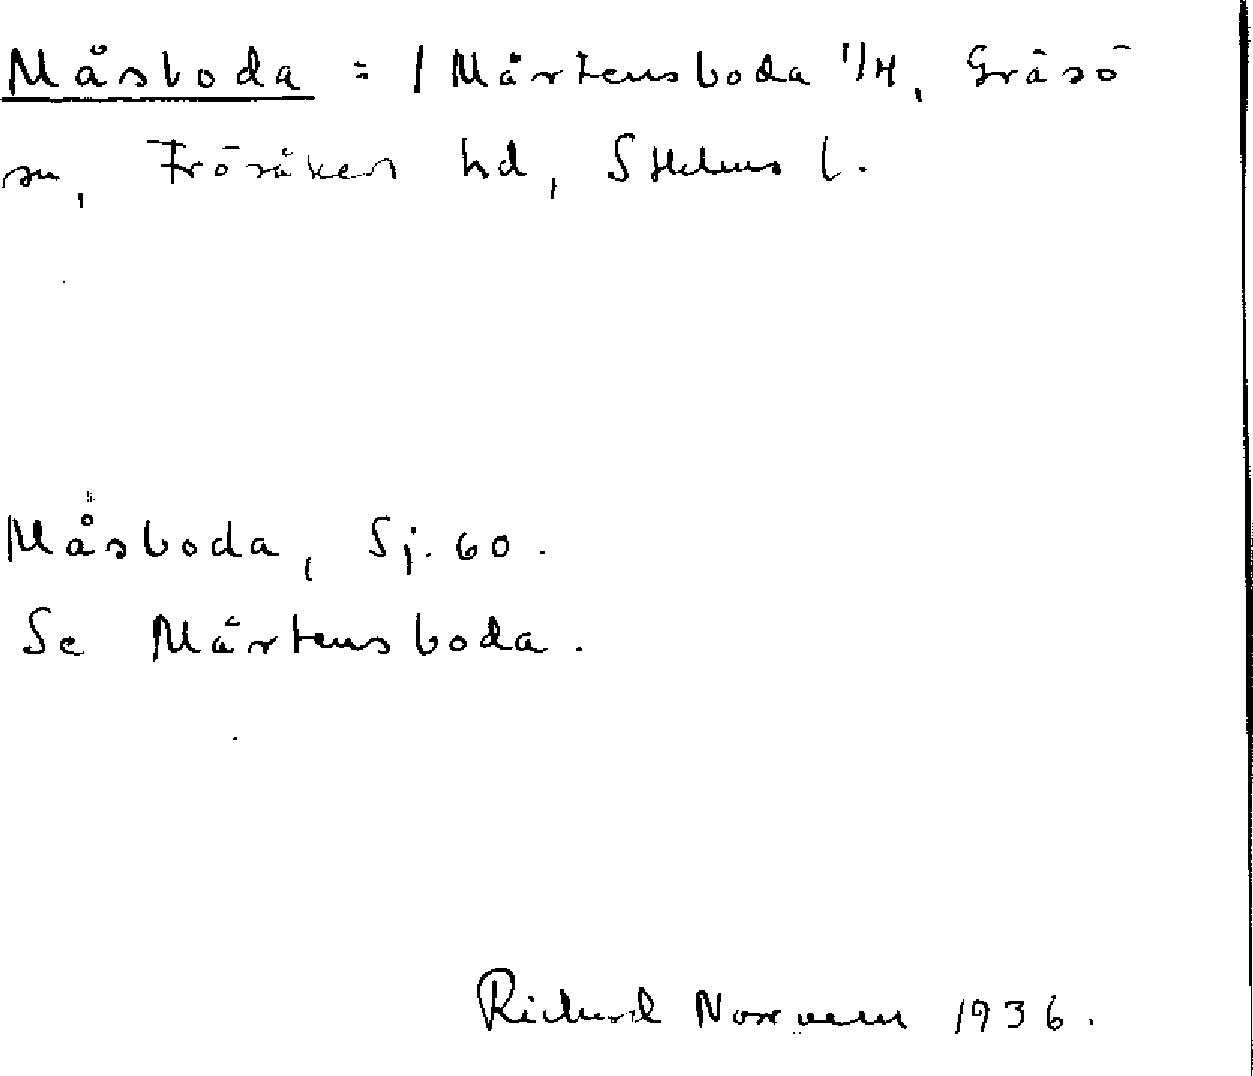 Måsboda = / Mårtensboda 1/4, Gräsö
sn, Frösåkers hd, Sthlms l.
Måsboda, Sj. 60.
Se Mårtensboda.
Richard Norrven 1936.